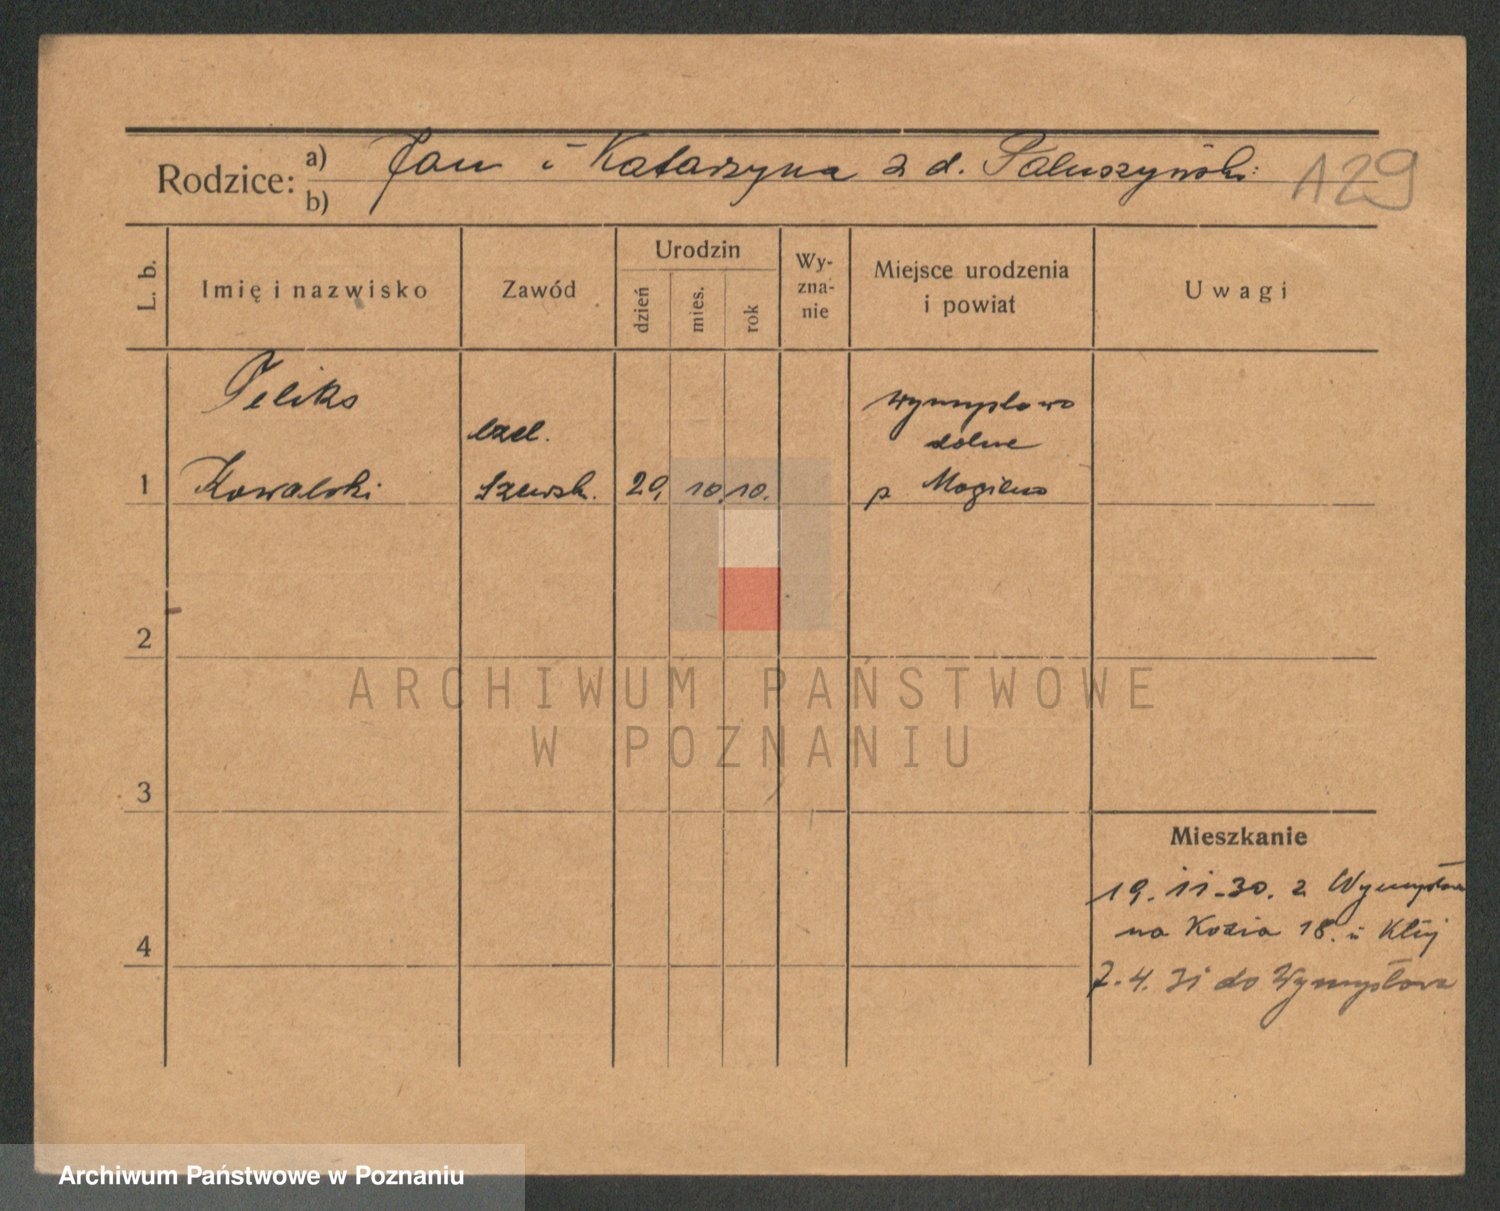 Rodzice: a) Jan i Katarzyna z d. 129
b)
L. b. Imię i nazwisko Zawód Urodzin dzień mies. rok Wy-zna-nie Miejsce urodzenia i powiat Uwagi
Feliks Wymysłowo
czel. dolne
1 Kowalski szewsk. 29. 10. 10. p Mogilno
2
ARCHIWUM PAŃSTWOWE
W POZNANIU
3
Mieszkanie
19. 11. 30. z Wymysłowa
na Kozia 18. u Klij
4
7. 4. 31 do Wymysłowa
Archiwum Państwowe w Poznaniu